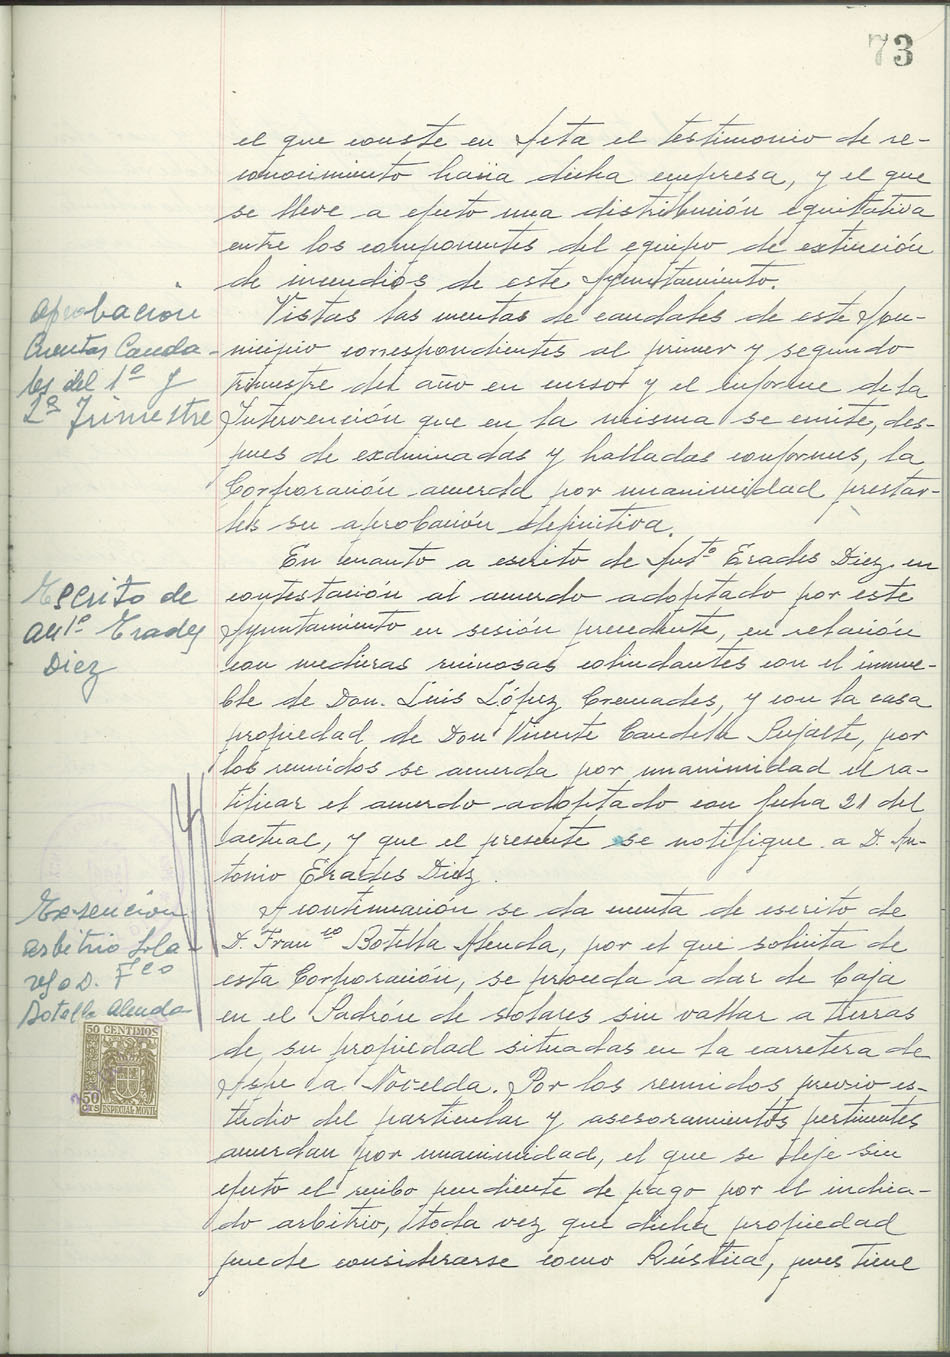 73
el que conste en Acta el testimonio de re-
conocimiento hacia dicha empresa, y el que
se lleve a efecto una distribución equitativa
entre los componentes del equipo de extinción
de incendios de este Ayuntamiento.
Aprobación
Cuentas Cauda-
les del 1º y
2º Trimestre
Vistas las cuentas de caudales de este Mu-
nicipio correspondientes al primer y segundo
trimestre del año en curso y el informe de la
Intervención que en la misma se emite, des-
pues de examinadas y halladas conformes, la
Corporación acuerda por unanimidad prestar-
les su aprobación definitiva.
Escrito de
Antº Erades
Diez
En cuanto a escrito de Antº Erades Diez en
contestación al acuerdo adoptado por este
Ayuntamiento en sesión precedente, en relación
con medieras ruinosas colindantes con el inmue-
ble de Don. Luis López Cremades, y con la casa
propiedad de Don Vicente Candela Pujalte, por
los reunidos se acuerda por unanimidad el ra-
tificar el acuerdo adoptado con fecha 21 del
actual, y que el presente se notifique a D. An-
tonio Erades Diez.
Exsencion
arbitrio Sola-
res a D. Fco
Botella Alenda
50 CENTIMOS
50
CTS
ESPECIAL MOVIL
A continuación se da cuenta de escrito de
D. Franco Botella Alenda, por el que solicita de
esta Corporación, se proceda a dar de baja
en el Padrón de solares sin vallar a tierras
de su propiedad situadas en la carretera de
Aspe a Novelda. Por los reunidos previo es-
tudio del particular y asesoramientos pertinentes
acuerdan por unanimidad, el que se deje sin
efecto el recibo pendiente de pago por el indica-
do arbitrio, toda vez que dicha propiedad
puede considerarse como Rústica, pues tiene